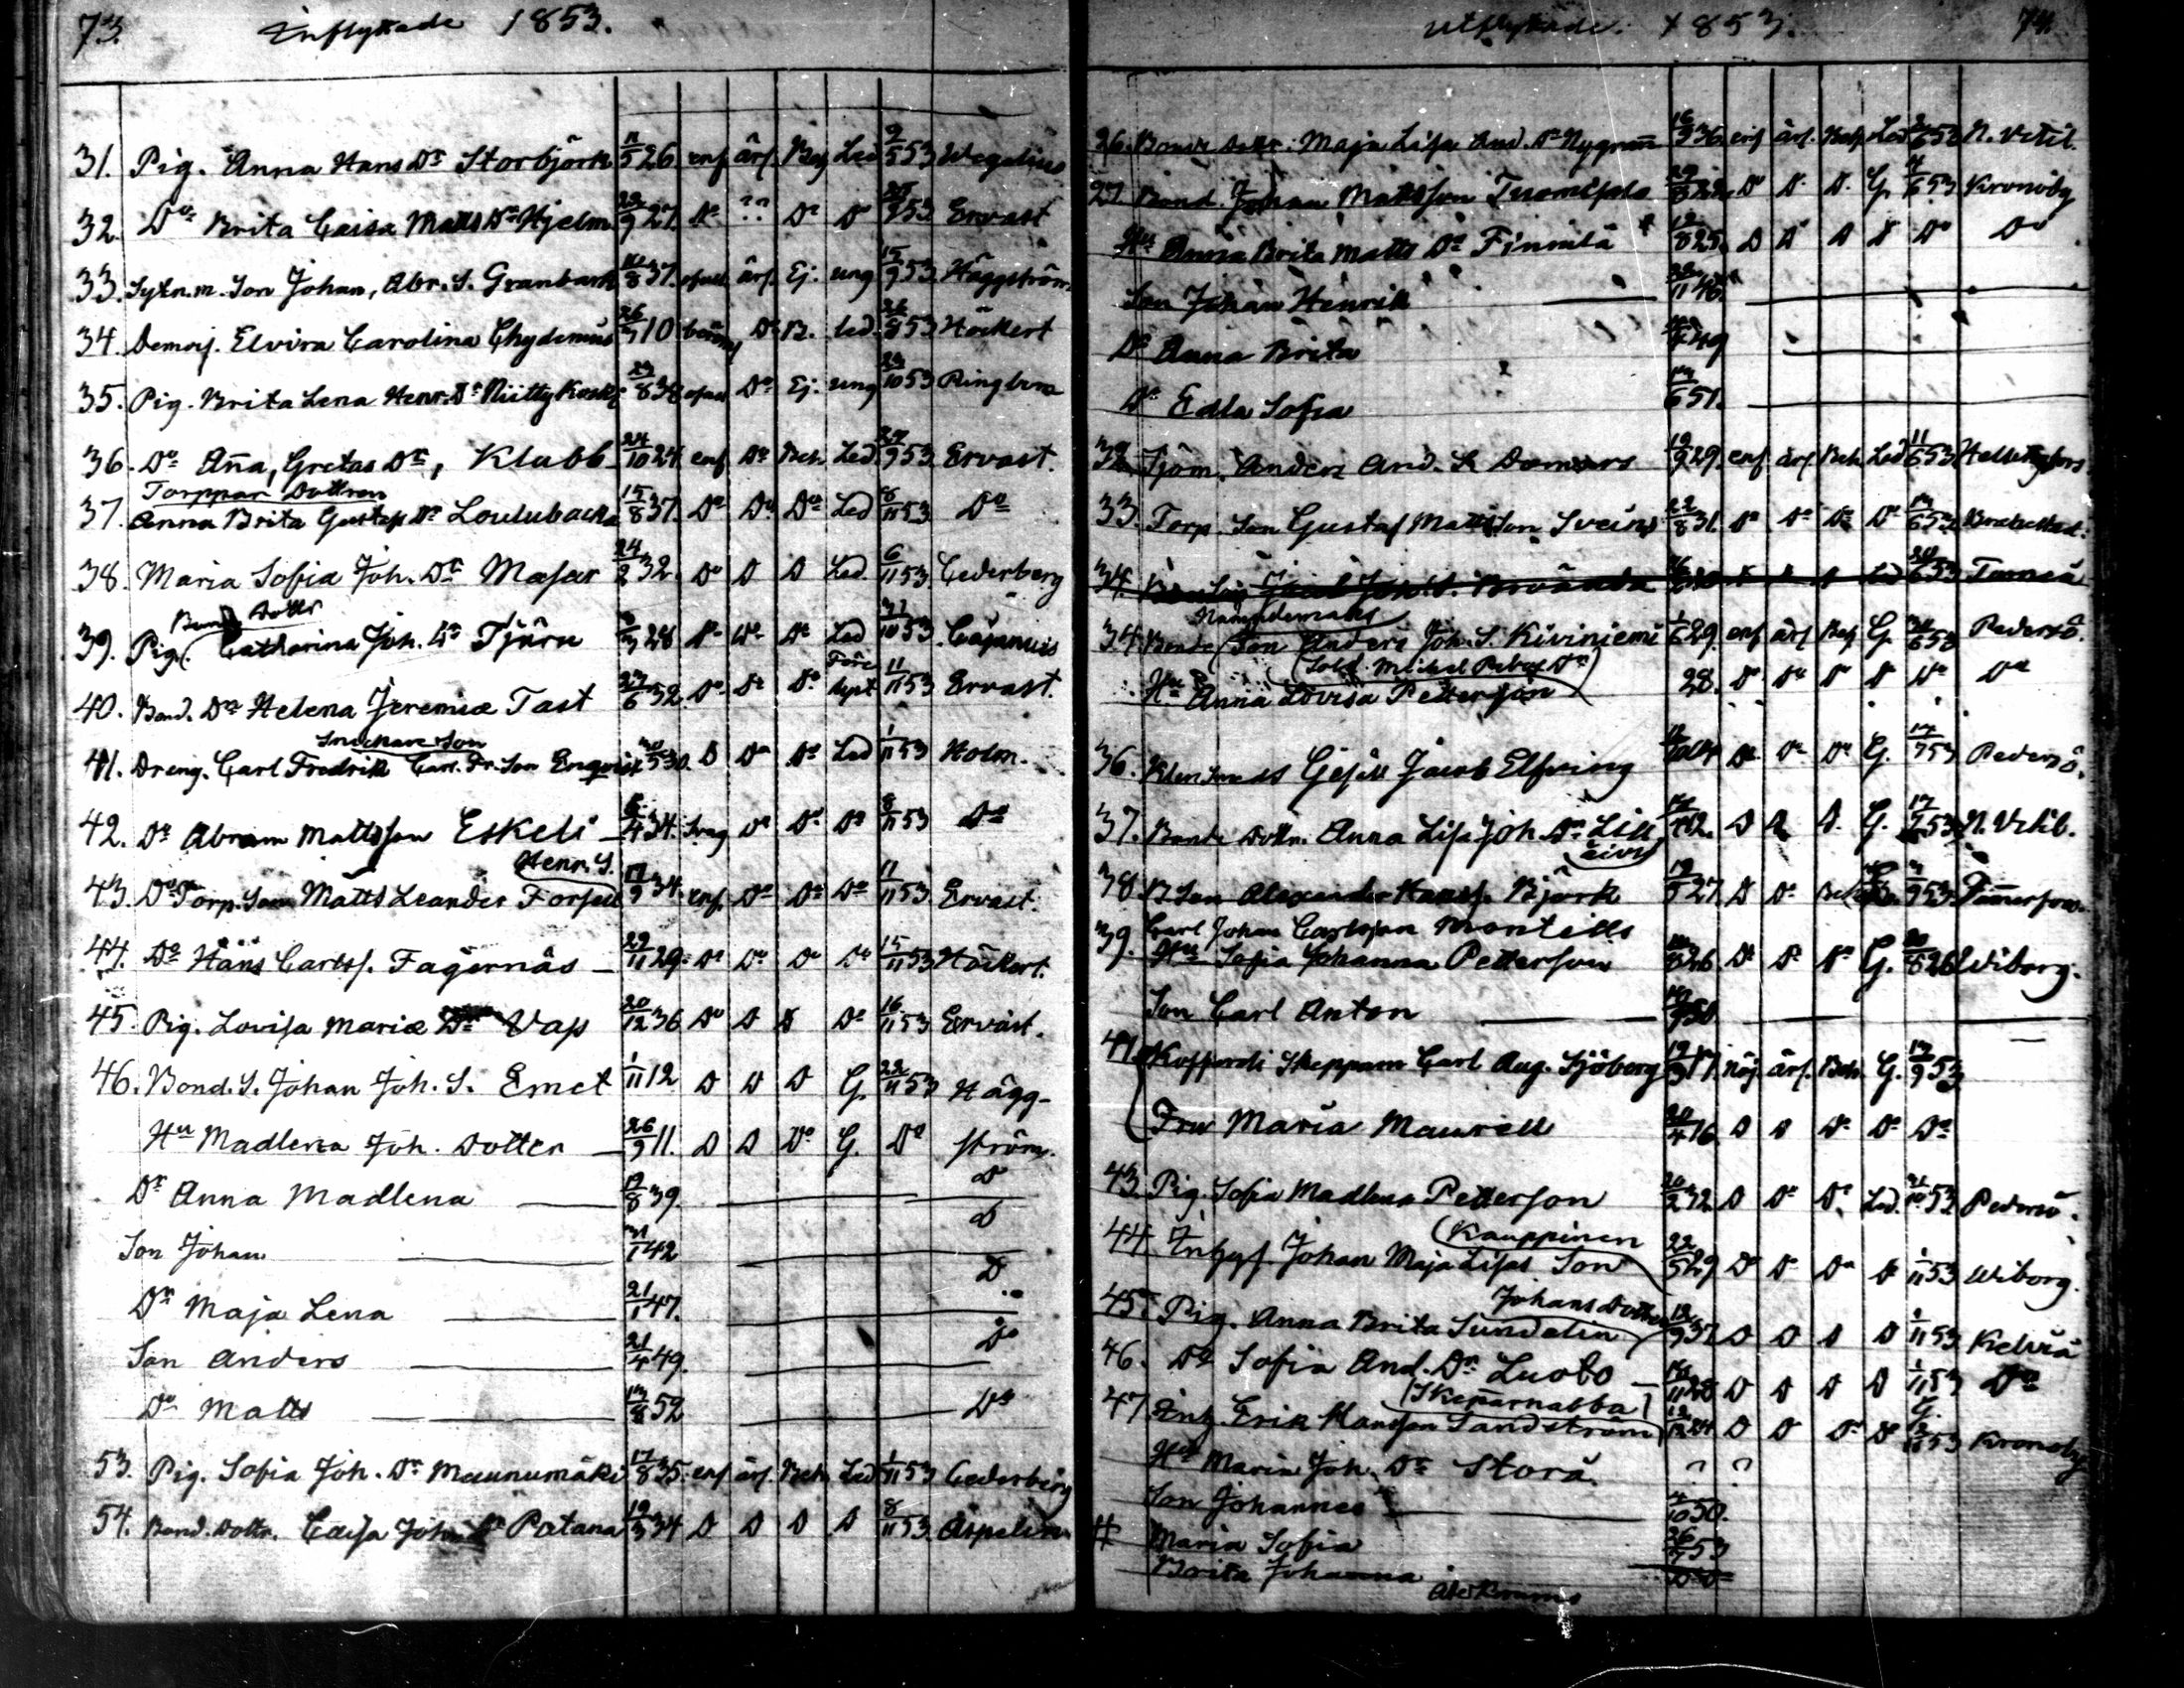 73. Inflyttade 1853.
31. Pig. Anna Hans Dr Storbjörk 11/5 26. enf ärf. Beh Led 9/5 53 Wegelius
32. Do Brita Caisa Matts Dr Hjelm 23/9 27. Do ?? Do Do 53 Ervast
33. Sytn.m. Son Johan, Abr. S. Granback 8 37. ärf. Ej. ung 15/9 53. Häggström
34. Demois. Elvira Carolina Chydenius 26 10 Do B. led. 8 53 Höckert
35. Pig. Brita Lena Henr. Dr Niittykoski 23/8 38 Do Ej. ung 23/10 53 Ringbom
36. Do Aña, Gretas Dr, Klubb 24/10 24. enf Do Beh. Led 9 53 Ervast.
Torppar Dottren
37. Anna Brita Gustaf Dr Loulubacka 15/8 37. Do Do Do Led 8/11 53 Do
38. Maria Sofia Joh. Dr Masar 24/2 32. Do D D Led. 6/11 53. Cederberg
Bond Dottr
39. Pig. Catharina Joh. Dr Tjäru 3 28 Do Do Do Led 31/10 53. Cajanus
40. Bond. Dr Helena Jeremiæ Tast 23/6 32 Do Do Do 11/11 53 Ervast.
Snickare Son
41. Dreng. Carl Fredrik Carl. Fr. Son Enqvist 30/5 30. D Do Do Led 1/11 53 Holm.
42. Do Abram Mattsson Eskeli 6/4 34. Svag Do Do Do 8/11 53 Do
Henr. S.
43. Do Torp. Son Matts Leander Forsell 17/9 34. enf. Do Do Do 11/11 53 Ervast.
44. Do Hans Carlss. Fagernäs 29/11 29. Do Do Do Do 15/11 53 Höckert.
45. Pig. Lovisa Mariæ Dr Vap 20/12 36 Do D D Do 16/11 53 Ervast.
46. Bond. S. Johan Joh. S. Emet 1/11 12 D D D G. 22/11 53 Hägg-
Hu Madlena Joh. Dotter 26/9 11. D D Do G. Do ström.
Dr Anna Madlena 19/8 39. D
Son Johan 31/1 42 D
Dr Maja Lena 21/1 47. D
Son Anders 21/4 49. Do
Do Matts 13/8 52 Do
53. Pig. Sofia Joh. Dr Maunumäki 17/8 35. enf ärf. Beh Led 1/11 53 Cederberg
54. Bond. Dottr. Caisa Joh. Dr Patana 19/3 34 D D D D 8/11 53. Aspelin
Utflyttade. 1853. 74.
26. Bonde Dottr. Maja Lisa And. Dr Nygren 16/9 36. enf ärf. Beh Led 53 N. Vetil.
27. Bond. Johan Mattsson Tuomisalo 29/8 22. Do D. D. G. 4/6 53 Kronoby
Hu Anna Brita Matts Dr Finnilä 12/8 25. D D D D Do Do
Son Johan Henrik 11 46.
Dr Anna Brita 49
Dr Edla Sofia 6 51.
32. Sjöm. Anders And. S. Domars 19/9 29. enf ärf Beh Led 11/6 53 Helsingfors
33. Torp. Son Gustaf Mattsson Sveins 22/8 31. Do Do Do Do 6 53 Brahestad.
34. 6 53 Torneå
Nämndemans
34. Bonde Son Anders Joh. S. Kiviniemi 1/6 29. enf ärf Beh G. 6 53 Pedersö.
Hu Anna Lovisa Petterson 28. D Do D D Do Do
36. Klen Smeds Gesäll Jacob Elfving Do Do Do G. 17/7 53 Pedersö.
37. Bonde Dottr. Anna Lisa Joh. Dr Lill 12. D D D. G. 17/7 53 N. Vetil.
38. B. Son Alexander Hanss. Björk 19/5 27. D Do 9 53 Tammerfors.
39. Carl Johan Carlsson Montells
Hu Sofia Johanna Petterson 8 26. Do Do Do G. 8 26 Wiborg.
Son Carl Anton 50
41. Kofferdi Skeppare Carl Aug. Sjöberg 19 17. nöj. ärf. Beh. G. 17/9 53
Fru Maria Maurell 20/4 16. D D Do Do Do
43. Pig. Sofia Madlena Petterson 20/2 32 D Do Do Led. 21/10 53. Pedersö.
Kauppinen
44. Inhys. Johan Maja Lisas Son 22/5 29 D D Do D 1/11 53 Wiborg.
Johans Dotter
45. Pig. Anna Brita Sundelin 12/9 37 D D D D 1/11 53 Kelviå
46. Do Sofia And. Dr Luoto 11 28 D D D D 1/11 53 Do
Skeparnabba
47. Inh. Erik Hansson Sandström 12/12 24 D D Do D G. 11 53 Kronoby
Hu Maria Joh. Dr Storå ? ?
Son Johannes 4/10 50.
# Maria Sofia 26 53
Brita Johanna